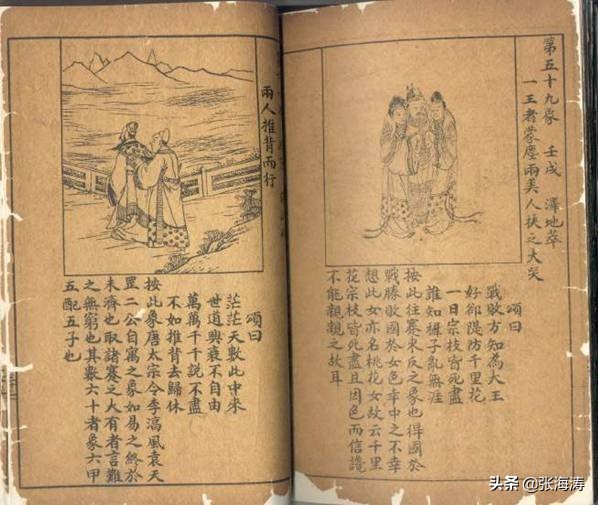 第五十九象 壬戌 澤地萃
一王者蒙塵兩美人扶之大笑
頌曰
戰敗方知為大王
好卻隄防千里花
一日宗枝皆死盡
誰知裸子亂無涯
按此往蹇來反之象也得國於
戰勝敗國於女色幸中之不幸
想此女亦名桃花女故云千里
花宗枝皆死盡且因色而信讒
不能親親之故耳
兩人推背而行
頌曰
茫茫天數此中來
世道興衰不自由
萬萬千千說不盡
不如推背去歸休
按此象唐太宗令李湻風袁天
罡二公自寓之象如易之終於
未濟也取諸蹇之大有者言難
之無窮也其數六十者象六甲
五配五子也
头条 @张海涛